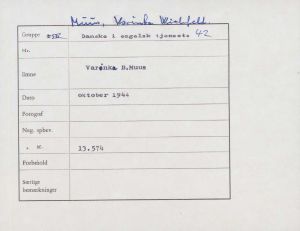 Muus, Varinka Wichfeld.
Gruppe Danske i engelsk tjeneste 42
Nr.
Emne Varinka B.Muus
Dato oktober 1944
Fotograf
Neg. opbev.
" nr. 13.574
Forbehold
Særlige
bemærkninger